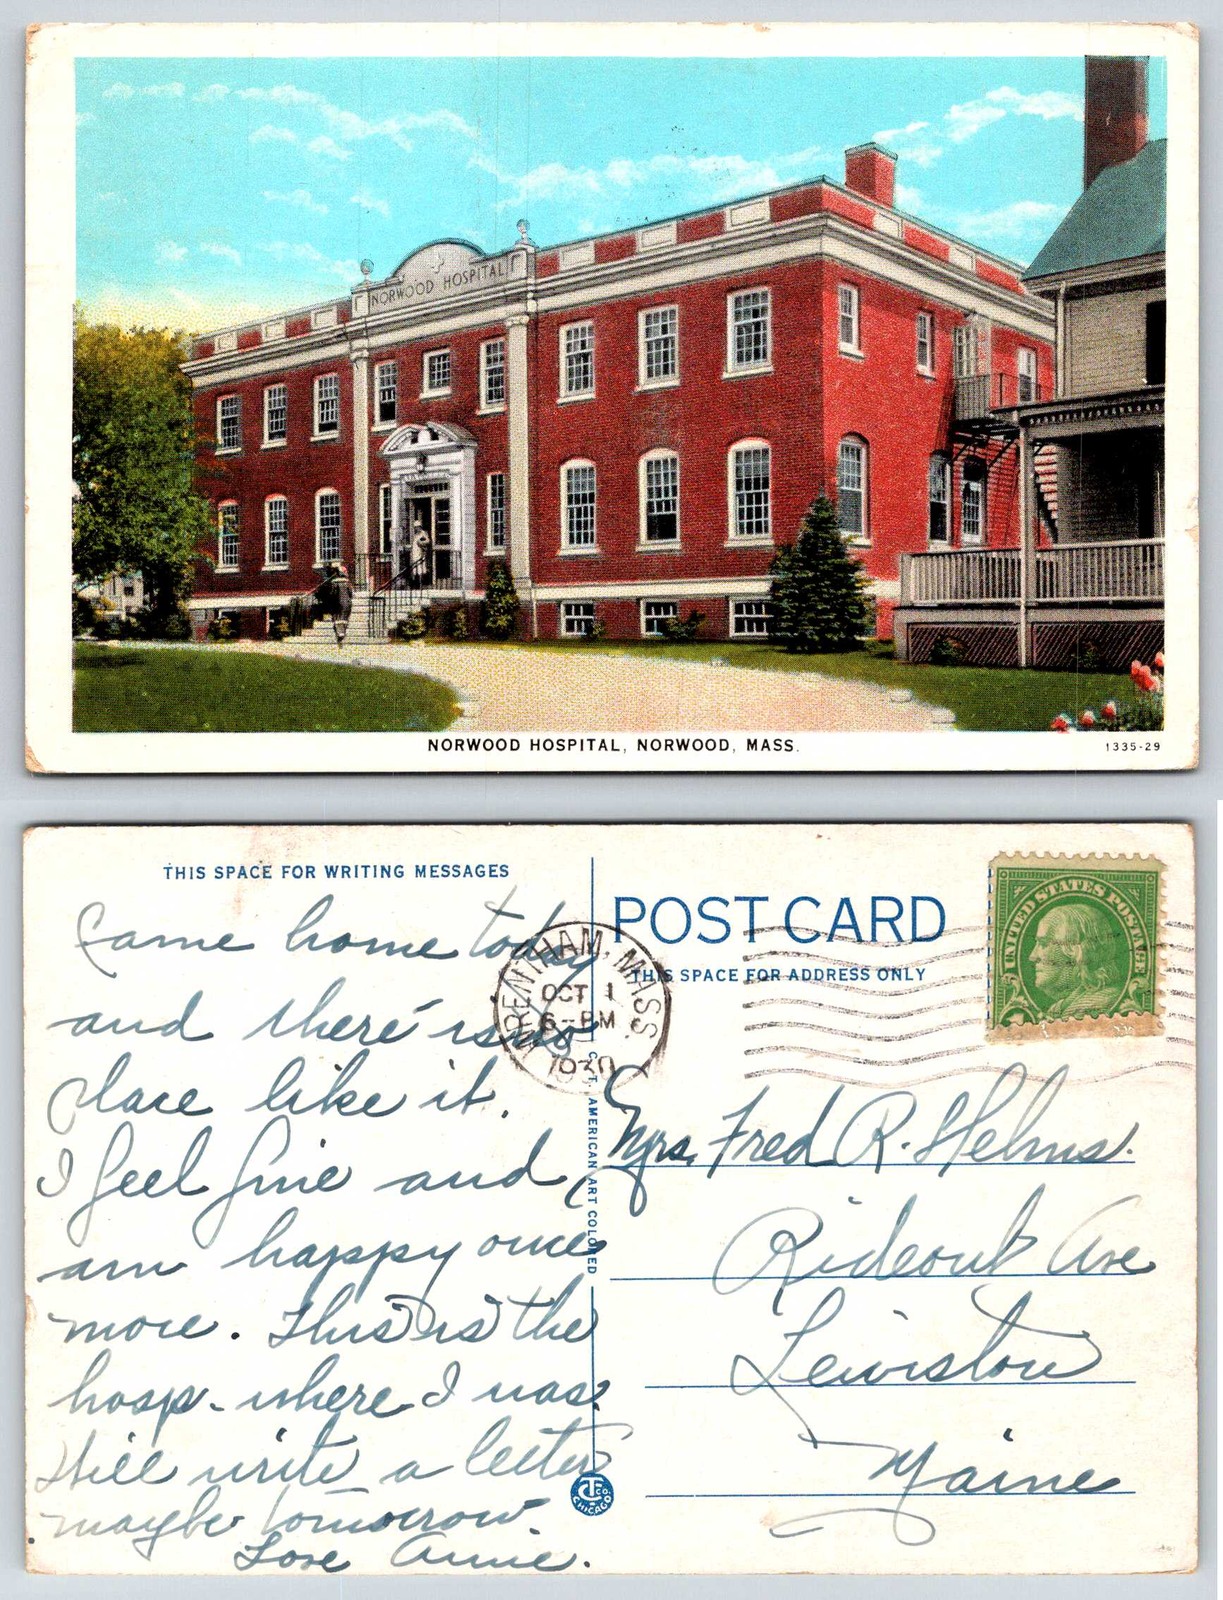 NORWOOD HOSPITAL
NORWOOD HOSPITAL, NORWOOD, MASS.
1335-29
THIS SPACE FOR WRITING MESSAGES
Came home today
and there is no
place like it.
I feel fine and
am happy once
more. This is the
hosp. where I was.
Will write a letter
maybe tomorrow.
Love Anne.
WRENTHAM, MASS.
OCT 1
6-PM
1930
POST CARD
THIS SPACE FOR ADDRESS ONLY
UNITED STATES POSTAGE
C. T. AMERICAN ART COLORED
Mrs. Fred R. Helms.
Rideout Ave
Lewiston
Maine
CHICAGO